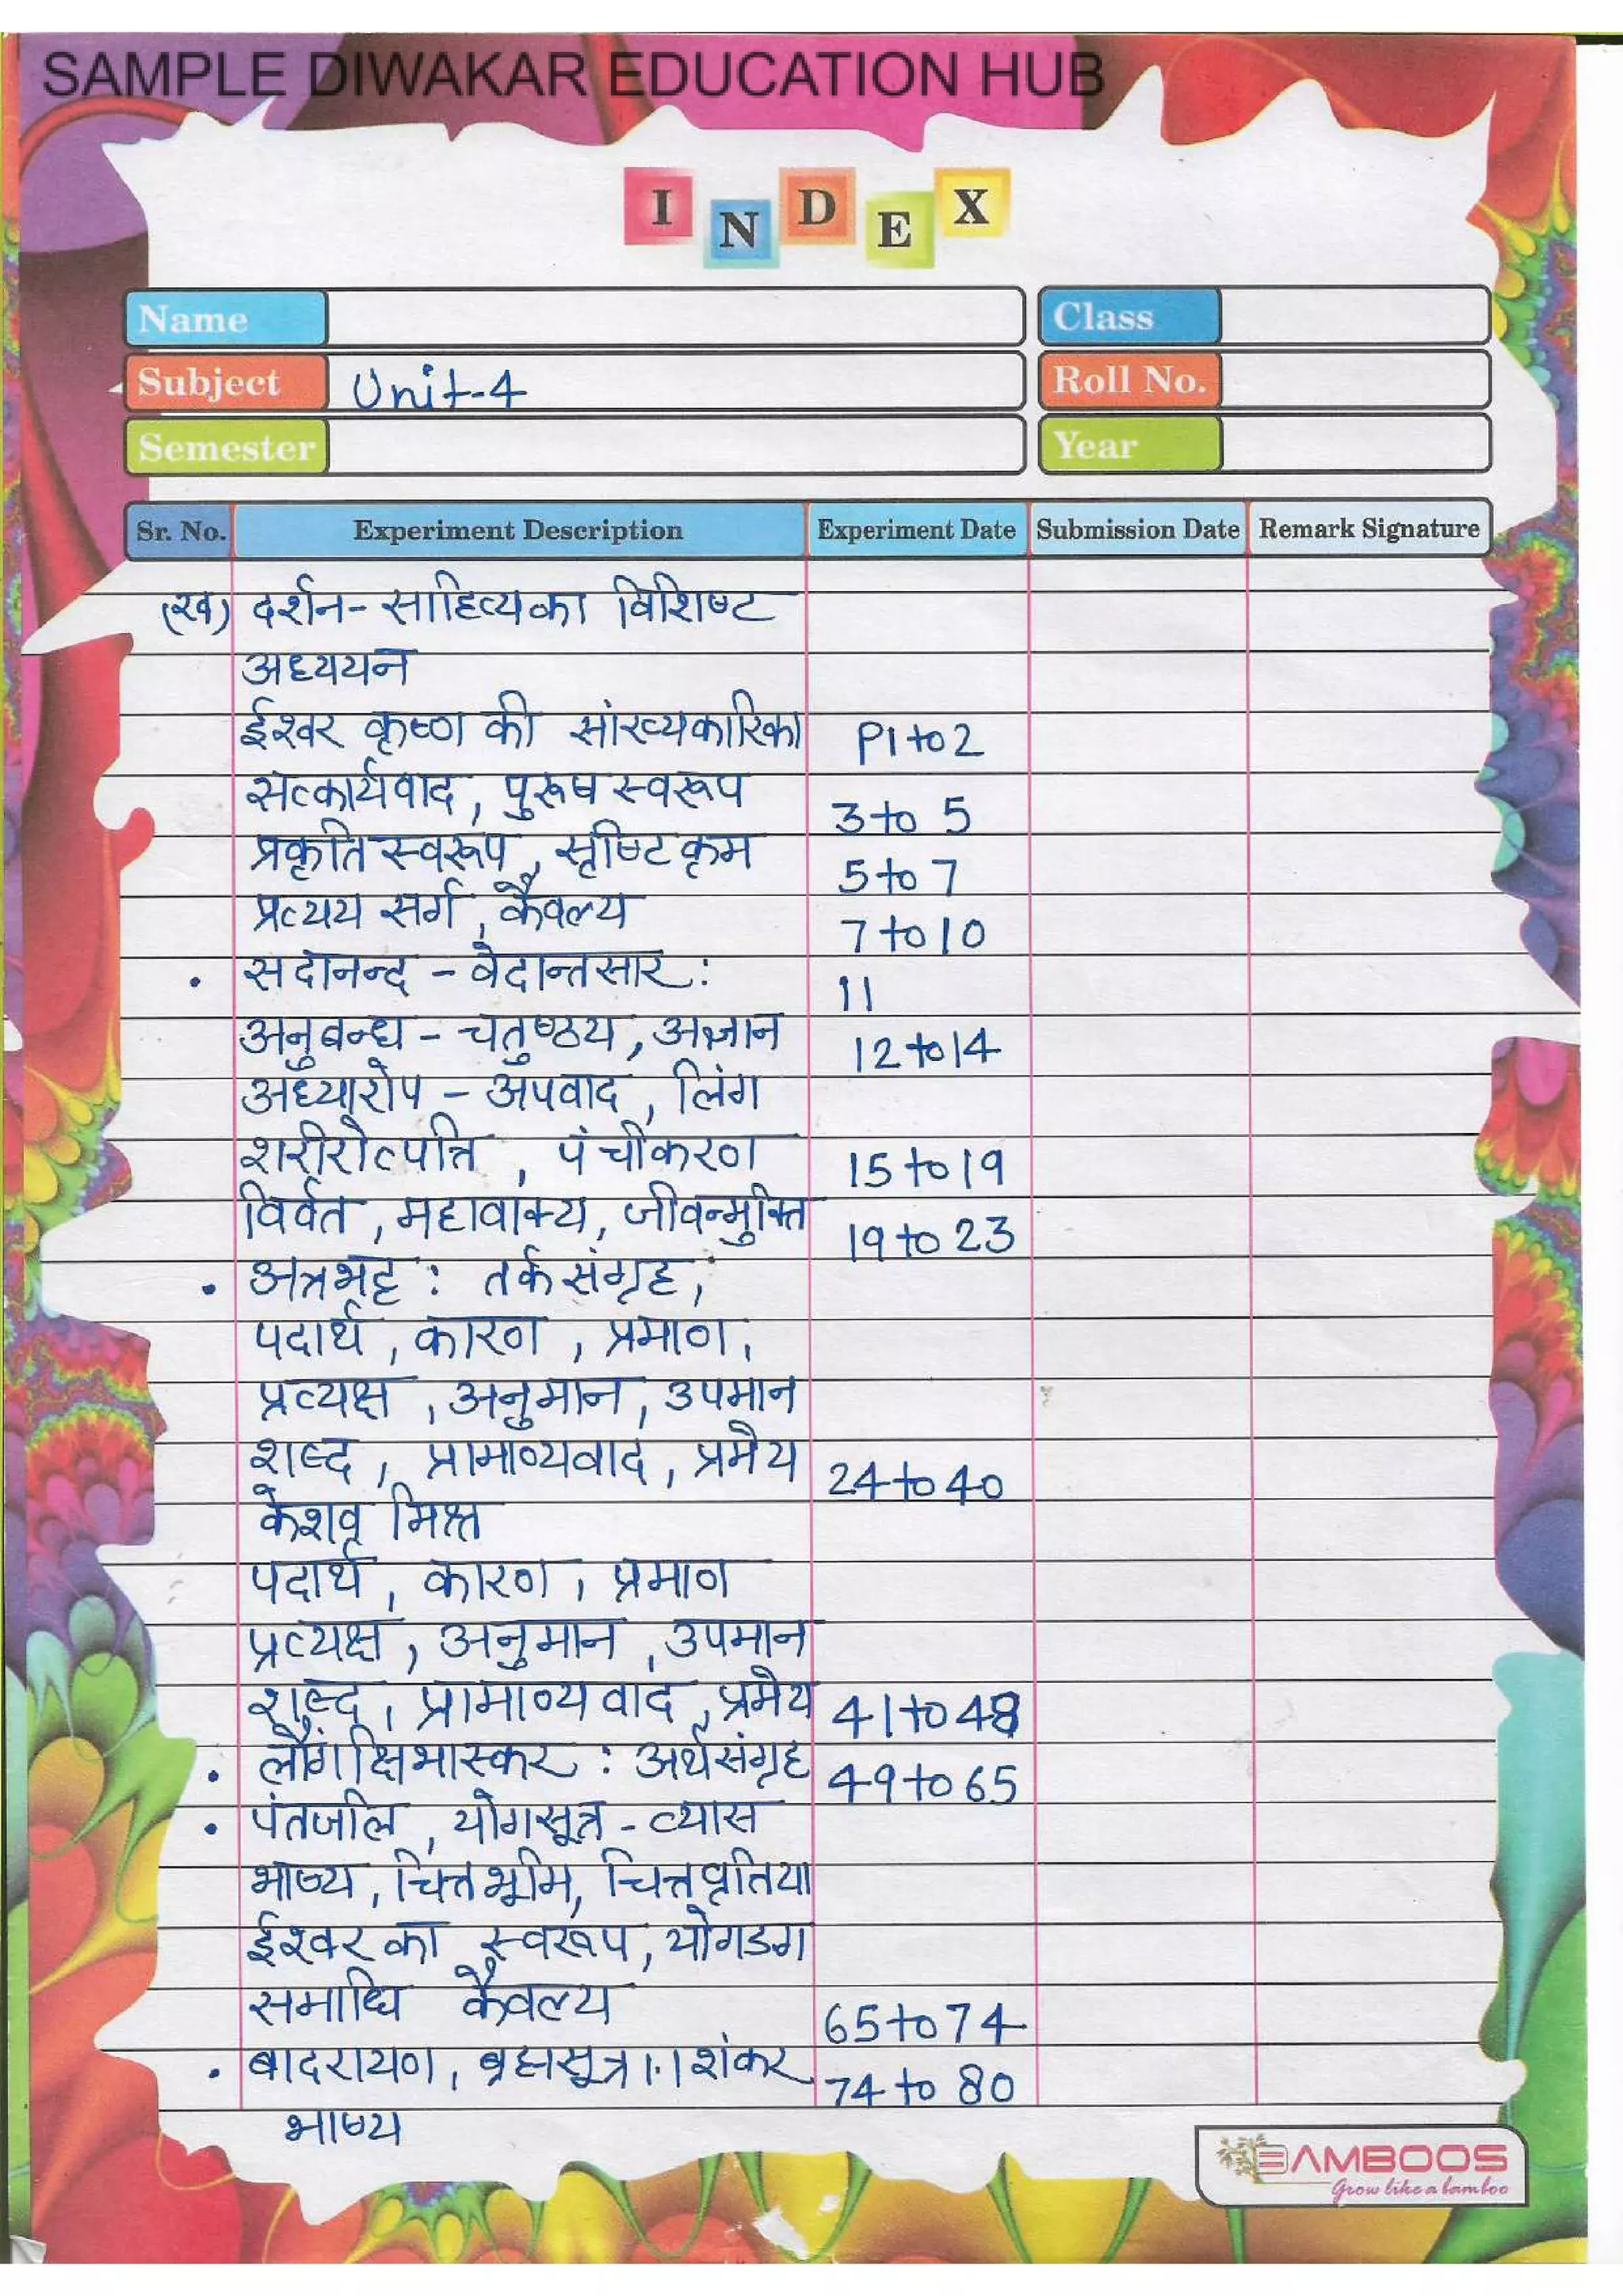 SAMPLE DIWAKAR EDUCATION HUB
INDEX
Name
Class
Subject Unit-4
Roll No.
Semester
Year
Sr. No. Experiment Description Experiment Date Submission Date Remark Signature
(ख) दर्शन- साहित्य का विशिष्ट
अध्ययन
ईश्वर कृष्ण की सांख्यकारिका P1 to 2
सत्कार्यवाद, पुरूष स्वरूप 3 to 5
प्रकृति स्वरूप, सृष्टि कृम 5 to 7
प्रत्यय सर्ग, कैवल्य 7 to 10
. सदानन्द - वेदान्तसार: 11
अनुबन्ध - चतुष्ठय, अज्ञान 12 to 14
अध्यारोप - अपवाद, लिंग
शरीरोत्पत्ति, पंचीकरण 15 to 19
विर्वत, महावाक्य, जीवन्मुक्ति 19 to 23
. अन्नभट्ट : तर्क संग्रह,
पदार्थ, कारण, प्रमाण,
प्रत्यक्ष, अनुमान, उपमान
शब्द, प्रामाण्यवाद, प्रमेय 24 to 40
केशव मिश्र
पदार्थ, कारण, प्रमाण
प्रत्यक्ष, अनुमान, उपमान
शब्द, प्रामाण्य वाद, प्रमेय 41 to 48
. लौगांक्षिभास्कर : अर्थसंग्रह 49 to 65
. पंतजलि, योगसूत्र - व्यास
भाष्य, चित्तभूमि, चित्तवृतिया
ईश्वर का स्वरूप, योगडग
समाधि कैवल्य 65 to 74
. बादरायण, ब्रह्मसूत्र 1.1 शंकर 74 to 80
भाष्य
BAMBOOS
Grow like a bamboo